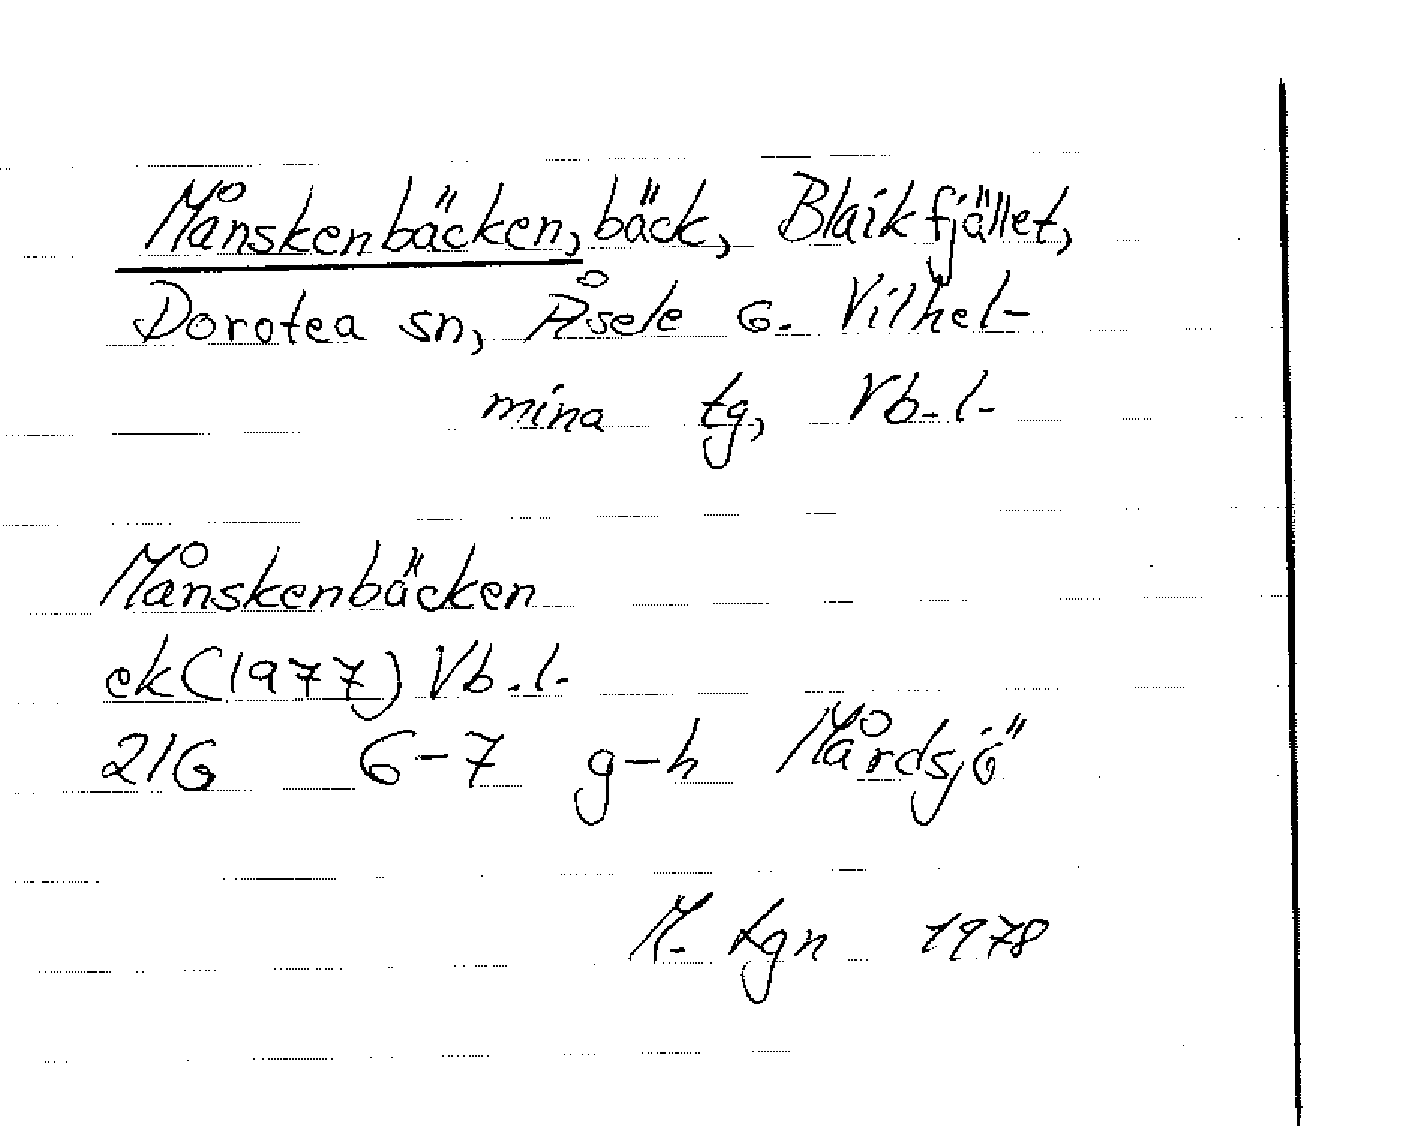 Månskenbäcken, bäck, Blaikfjället,
Dorotea sn, Åsele o. Vilhel-
mina tg, Vb. l.
Månskenbäcken
ek (1977) Vb. l.
21G 6-7 g-h Mårdsjö
M. tgn 1978